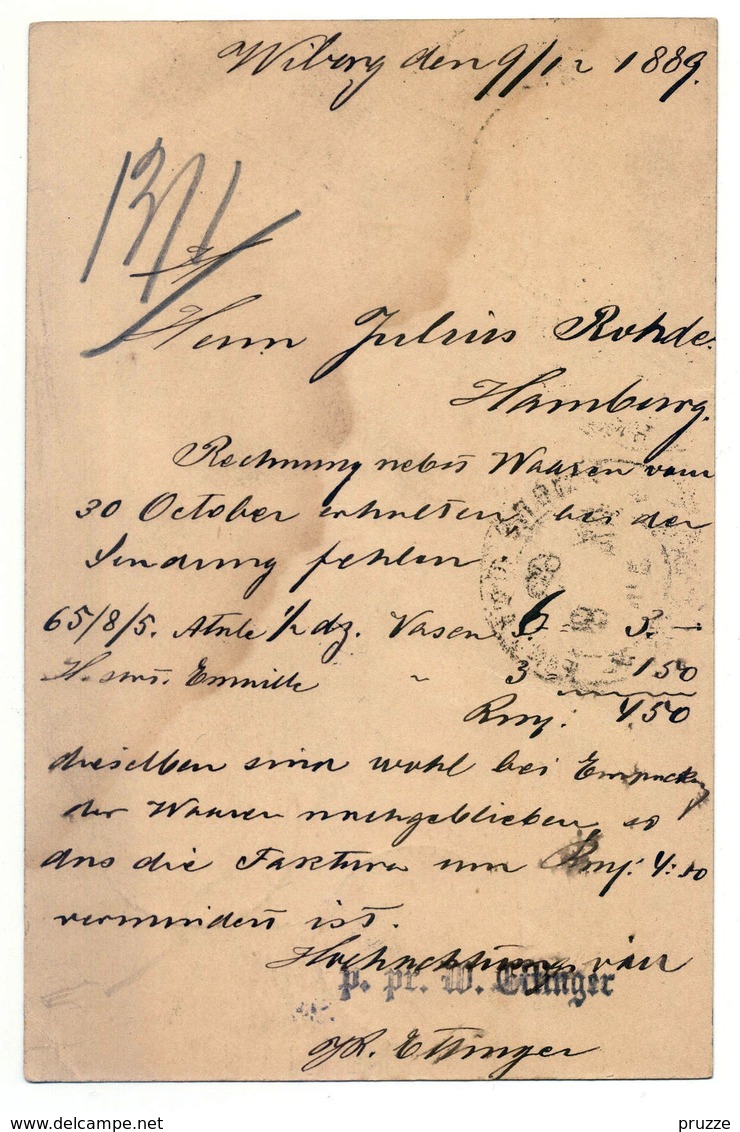 Wiborg den 9/12 1889.
13/1
Herrn Julius Rohde.
Hamburg.
Rechnung nebst Waaren vom
30 October erhalten, bei der
Sendung fehlen
65/8/5. 1/2 dz. Vasen 6 3.—
" 3 1 50
Rmf: 4 50
dieselben sind wohl bei Empacken
der Waaren nachgeblieben, so
das die Faktura um Rmf: 4:50
vermindert ist.
Hochachtungsvoll
p. pr. W. Ettinger
R. Ettinger
pruzze